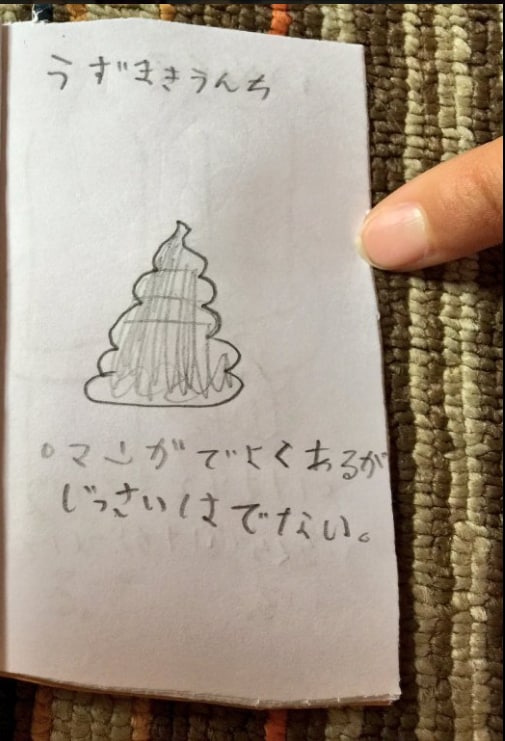 うずまきうんち
○マンガでよくあるが
じっさいはでない。